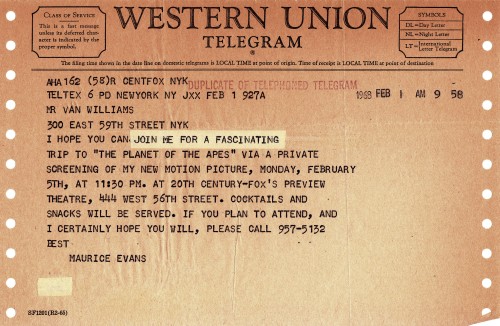 CLASS OF SERVICE
This is a fast message
unless its deferred char-
acter is indicated by the
proper symbol.
WESTERN UNION
TELEGRAM
SYMBOLS
DL=Day Letter
NL=Night Letter
LT=International Letter Telegram
The filing time shown in the date line on domestic telegrams is LOCAL TIME at point of origin. Time of receipt is LOCAL TIME at point of destination
AHA162 (58)R CENTFOX NYK
DUPLICATE OF TELEPHONED TELEGRAM
TELTEX 6 PD NEWYORK NY JXX FEB 1 927A
1968 FEB 1 AM 9 58
MR VAN WILLIAMS
300 EAST 59TH STREET NYK
I HOPE YOU CAN JOIN ME FOR A FASCINATING
TRIP TO "THE PLANET OF THE APES" VIA A PRIVATE
SCREENING OF MY NEW MOTION PICTURE, MONDAY, FEBRUARY
5TH, AT 11:30 PM. AT 20TH CENTURY-FOX'S PREVIEW
THEATRE, 444 WEST 56TH STREET. COCKTAILS AND
SNACKS WILL BE SERVED. IF YOU PLAN TO ATTEND, AND
I CERTAINLY HOPE YOU WILL, PLEASE CALL 957-5132
BEST
MAURICE EVANS
SF1201(R2-65)